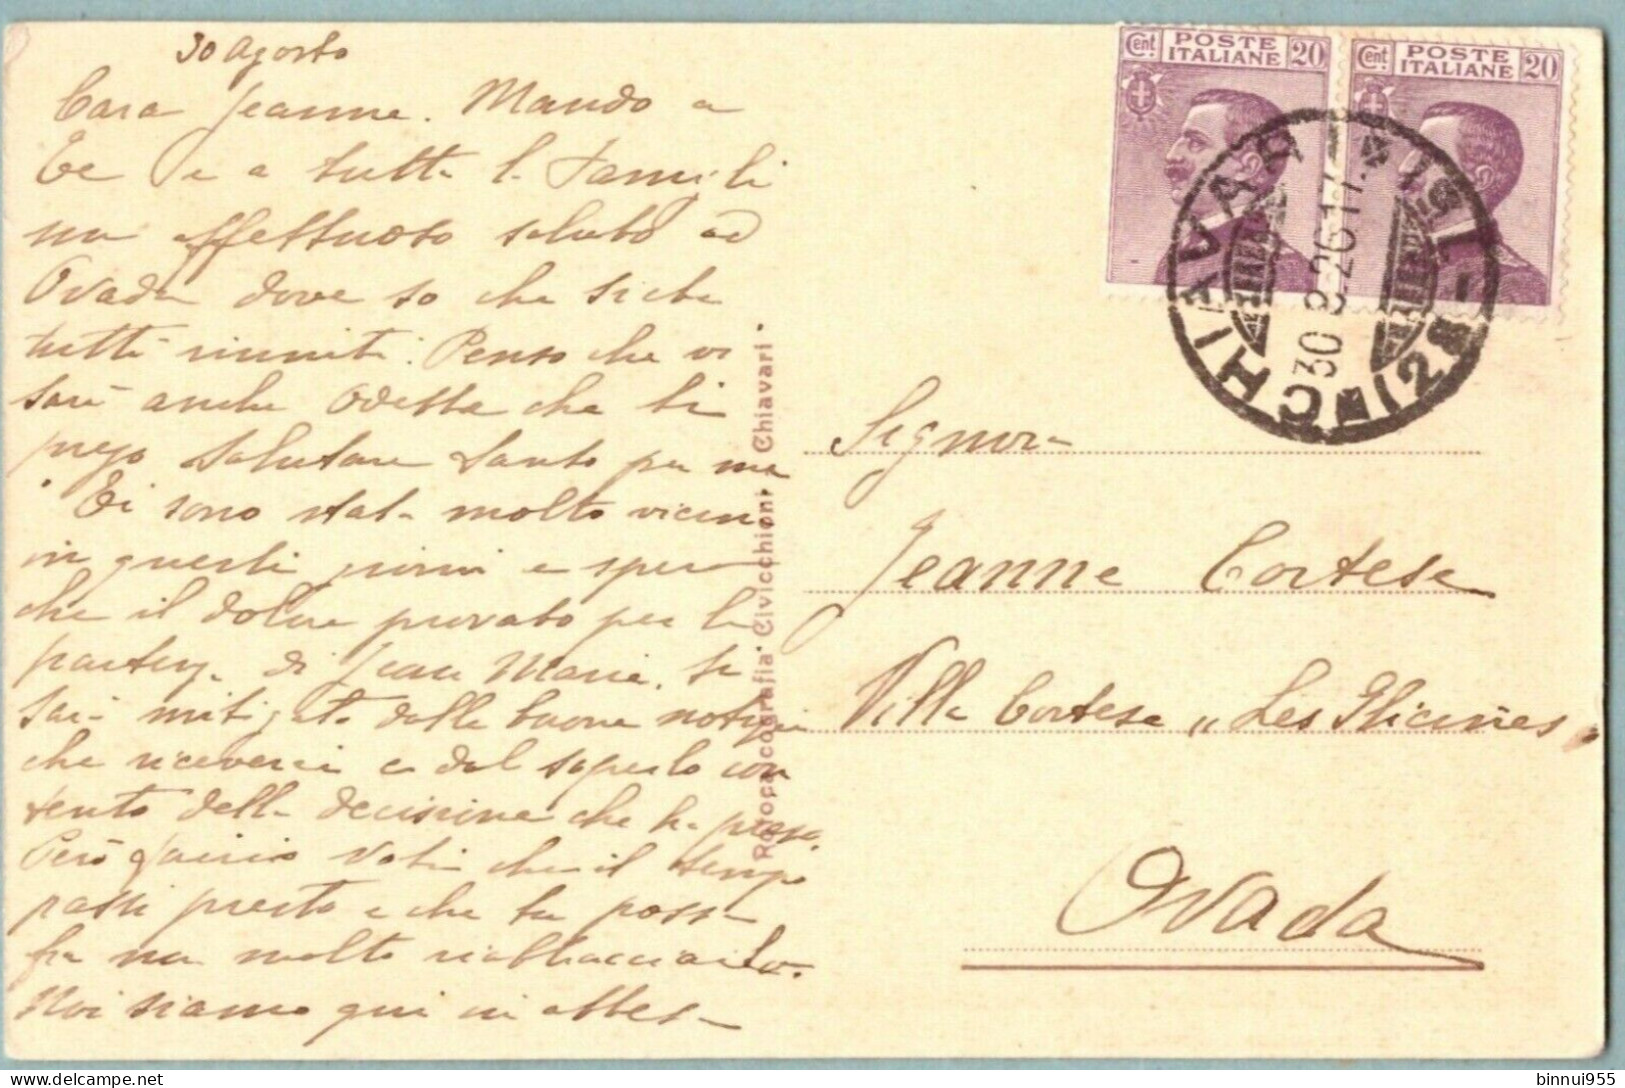 30 Agosto
Cara Jeanne. Mando a
Te e a tutta la Famiglia
un affettuoso saluto ad
Ovada dove so che siete
tutti riuniti. Penso che vi
sarà anche Odetta che ti
prego salutare tanto per me
Ti sono stata molto vicina
in questi giorni e spero
che il dolore provato per la
partenza di Jean Marie, ti
sarà mitigato dalle buone notizie
che riceverai e dal saperlo con
tento della decisione che ha presa.
Però faccio voti che il tempo
passi presto e che tu possa
fra non molto riabbracciarlo.
Noi siamo qui in attesa
Rotocalcografia Civicchioni, Chiavari
Cent POSTE ITALIANE 20
Cent. POSTE ITALIANE 20
CHIAVARI
30 8-26 17
(28
Signora
Jeanne Cortese
Villa Cortese "Les Glicines"
Ovada
binnui955